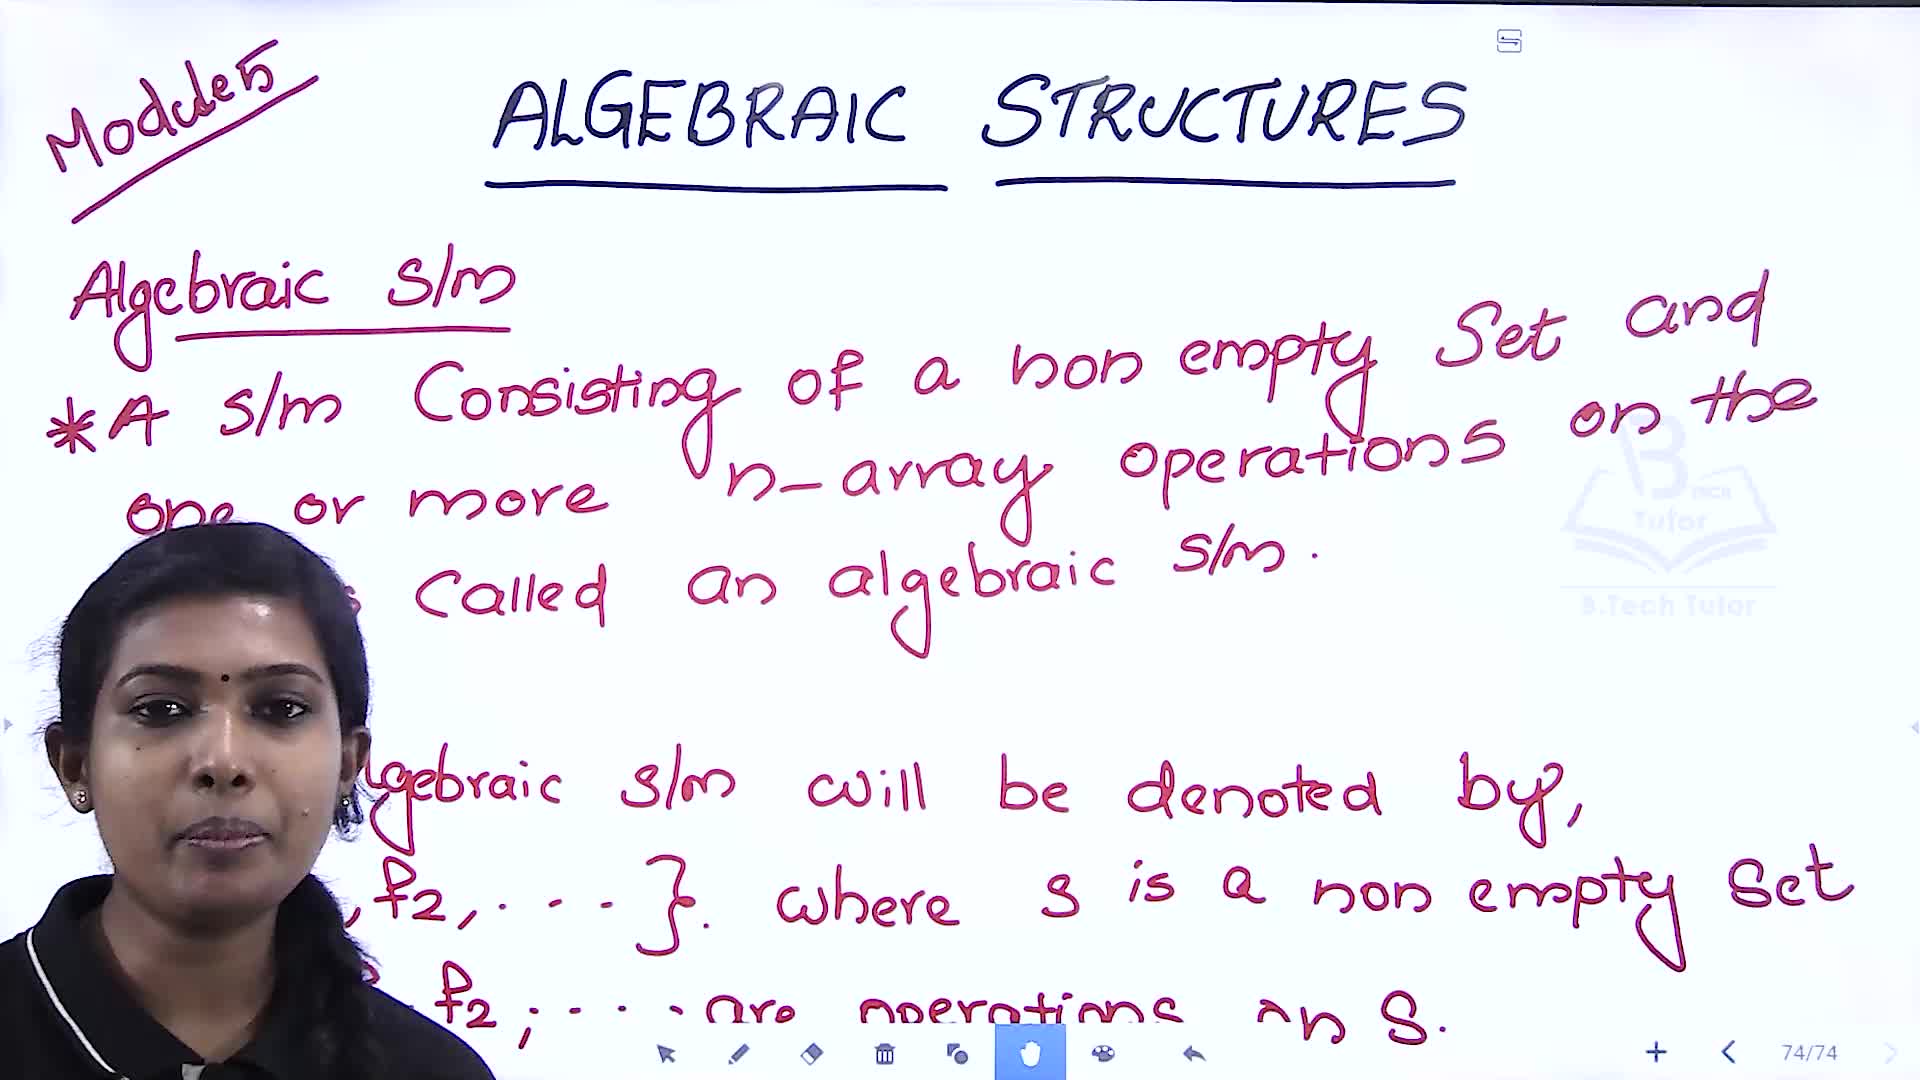 Module 5
ALGEBRAIC STRUCTURES
Algebraic s/m
*A s/m Consisting of a non empty Set and
one or more n-array operations on the
called an algebraic s/m.
will be denoted by,
algebraic s/m
, f2, .... }. where s is a non empty Set
f2, .... are operations on S.
B.Tech Tutor
74/74